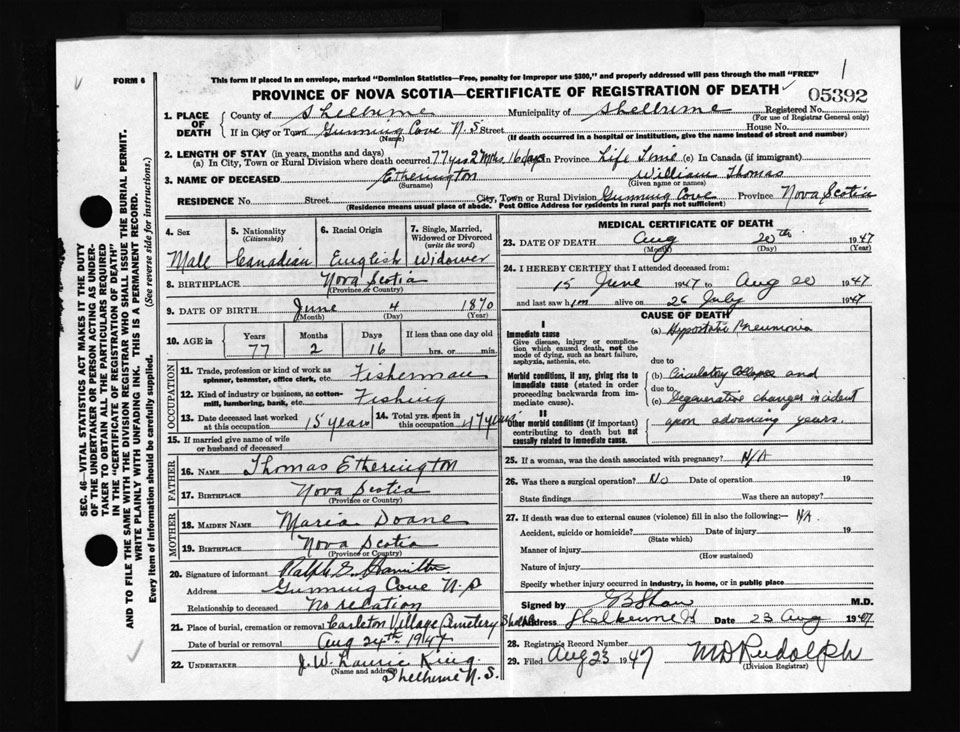 FORM 6
This form if placed in an envelope, marked "Dominion Statistics—Free, penalty for improper use $300," and properly addressed will pass through the mail "FREE"
PROVINCE OF NOVA SCOTIA—CERTIFICATE OF REGISTRATION OF DEATH
05392
1. PLACE OF DEATH
County of Shelburne Municipality of Shelburne Registered No.
(For use of Registrar General only)
If in City or Town Gunning Cove N.S. Street House No.
(Name) (If death occurred in a hospital or institution, give the name instead of street and number)
2. LENGTH OF STAY (in years, months and days)
(a) In City, Town or Rural Division where death occurred 77 yrs 2 mths 16 days In Province Life Time (c) In Canada (if immigrant)
3. NAME OF DECEASED Etherington William Thomas
(Surname) (Given name or names)
RESIDENCE No. Street City, Town or Rural Division Gunning Cove Province Nova Scotia
(Residence means usual place of abode. Post Office Address for residents in rural parts not sufficient)
4. Sex Male
5. Nationality (Citizenship) Canadian
6. Racial Origin English
7. Single, Married, Widowed or Divorced (write the word) Widower
8. BIRTHPLACE Nova Scotia
(Province or Country)
9. DATE OF BIRTH June 4 1870
(Month) (Day) (Year)
10. AGE in Years Months Days If less than one day old
77 2 16 hrs. or min.
OCCUPATION
11. Trade, profession or kind of work as spinner, teamster, office clerk, etc. Fisherman
12. Kind of industry or business, as cotton-mill, lumbering, bank, etc. Fishing
13. Date deceased last worked at this occupation 15 years
14. Total yrs. spent in this occupation 47 years
15. If married give name of wife or husband of deceased
FATHER
16. NAME Thomas Etherington
17. BIRTHPLACE Nova Scotia
(Province or Country)
MOTHER
18. MAIDEN NAME Maria Doane
19. BIRTHPLACE Nova Scotia
(Province or Country)
20. Signature of informant Ralph G. Hamilton
Address Gunning Cove N.S
Relationship to deceased No relation
21. Place of burial, cremation or removal Carleton Village Cemetery
Date of burial or removal Aug 24th 1947
22. UNDERTAKER J. W. Laurie King
(Name and address) Shelburne N. S.
MEDICAL CERTIFICATE OF DEATH
23. DATE OF DEATH Aug 20th 1947
(Month) (Day)
24. I HEREBY CERTIFY that I attended deceased from:
15 June 1947 to Aug 20 1947
and last saw him alive on 26 July 1947
CAUSE OF DEATH
I
Immediate cause
Give disease, injury or complication which caused death, not the mode of dying, such as heart failure, asphyxia, asthenia, etc.
(a) Hypostatic Pneumonia
due to
Morbid conditions, if any, giving rise to immediate cause (stated in order proceeding backwards from immediate cause).
(b) Circulatory Collapse and
due to
(c) Degenerative changes incident
upon advancing years.
II
Other morbid conditions (if important) contributing to death but not causally related to immediate cause.
25. If a woman, was the death associated with pregnancy? N/A
26. Was there a surgical operation? No Date of operation 19
State findings Was there an autopsy?
27. If death was due to external causes (violence) fill in also the following:— NA
Accident, suicide or homicide? Date of injury 19
(State which)
Manner of injury
(How sustained)
Nature of injury
Specify whether injury occurred in industry, in home, or in public place
Signed by GB Shaw M.D.
Address Shelburne Date 23 Aug 1947
28. Registrar's Record Number
29. Filed Aug 23 1947 MD Rudolph
(Division Registrar)
SEC. 46—VITAL STATISTICS ACT MAKES IT THE DUTY
OF THE UNDERTAKER OR PERSON ACTING AS UNDERTAKER TO OBTAIN ALL THE PARTICULARS REQUIRED
IN THE "CERTIFICATE OF REGISTRATION OF DEATH"
AND TO FILE THE SAME WITH THE DIVISION REGISTRAR WHO SHALL ISSUE THE BURIAL PERMIT.
WRITE PLAINLY WITH UNFADING INK. THIS IS A PERMANENT RECORD.
Every item of information should be carefully supplied. (See reverse side for instructions.)